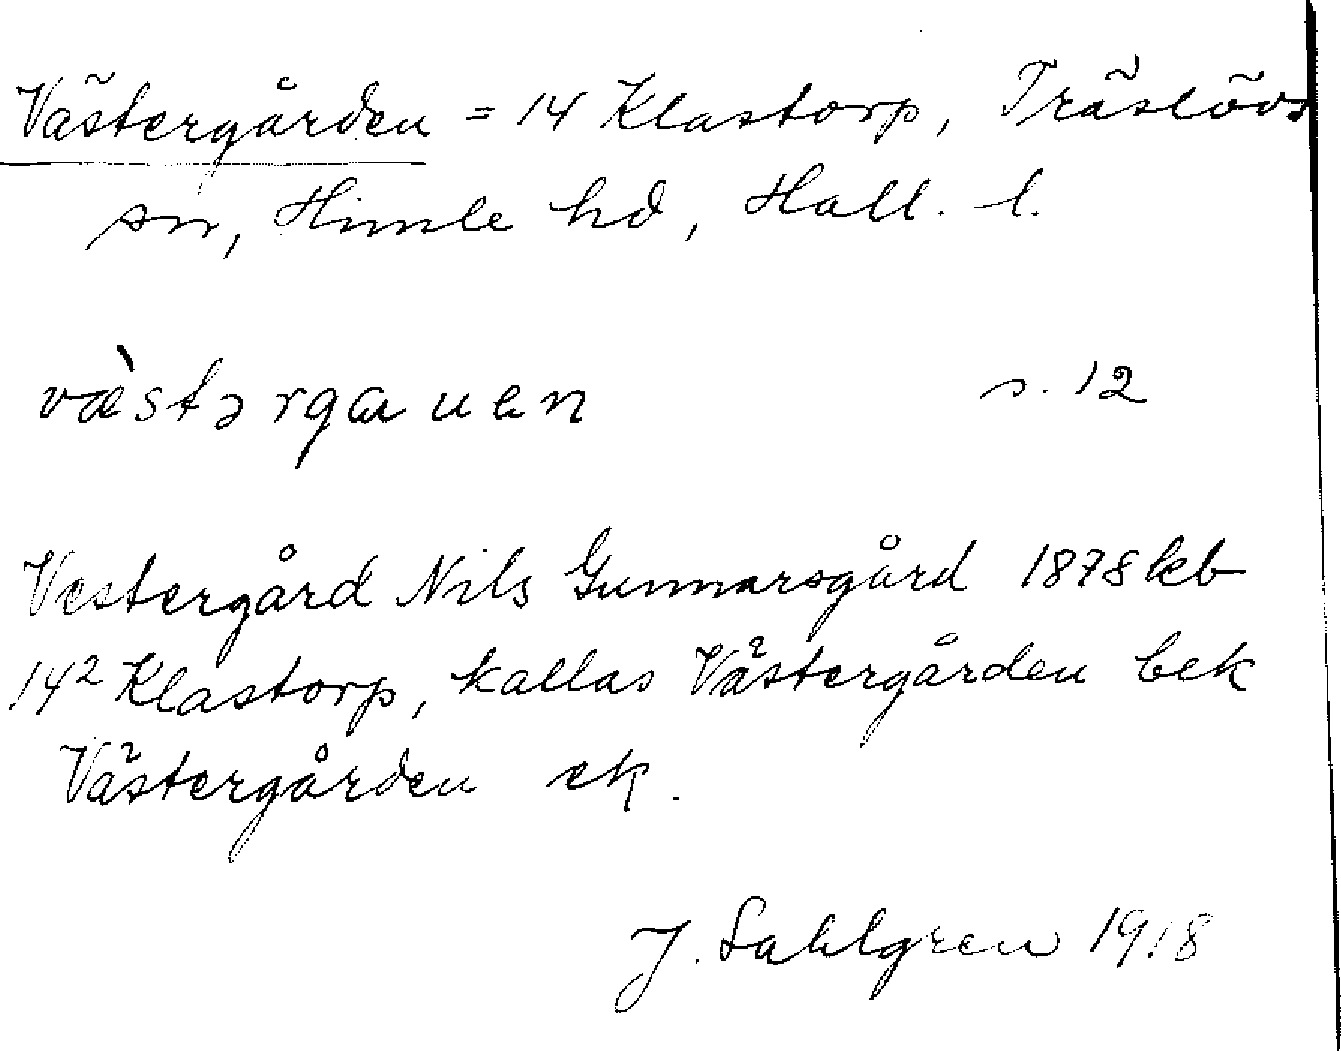 Västergården = 14 Klastorp, Träslövs
sn, Himle hd, Hall. l.
væ̀stərgɑuen s. 12
Vestergård Nils Gunnarsgård 1878 kb
14² Klastorp, kallas Västergården bek
Västergården ek.
J. Sahlgren 1918